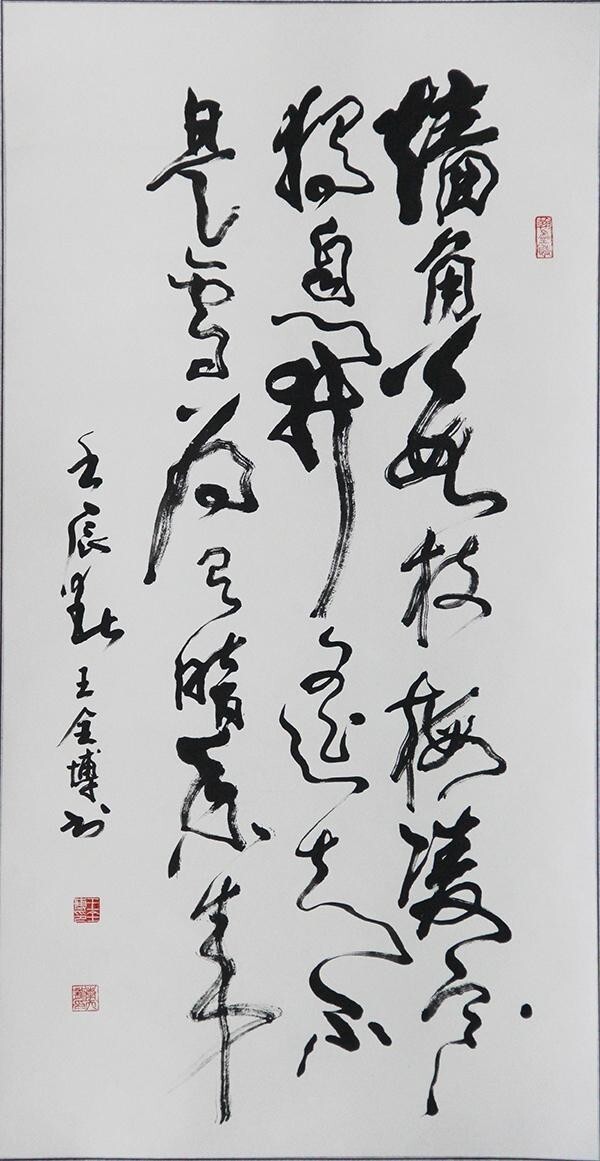 墙角数枝梅凌寒
独自开遥知不
是雪为有暗香来
壬辰 王全博书